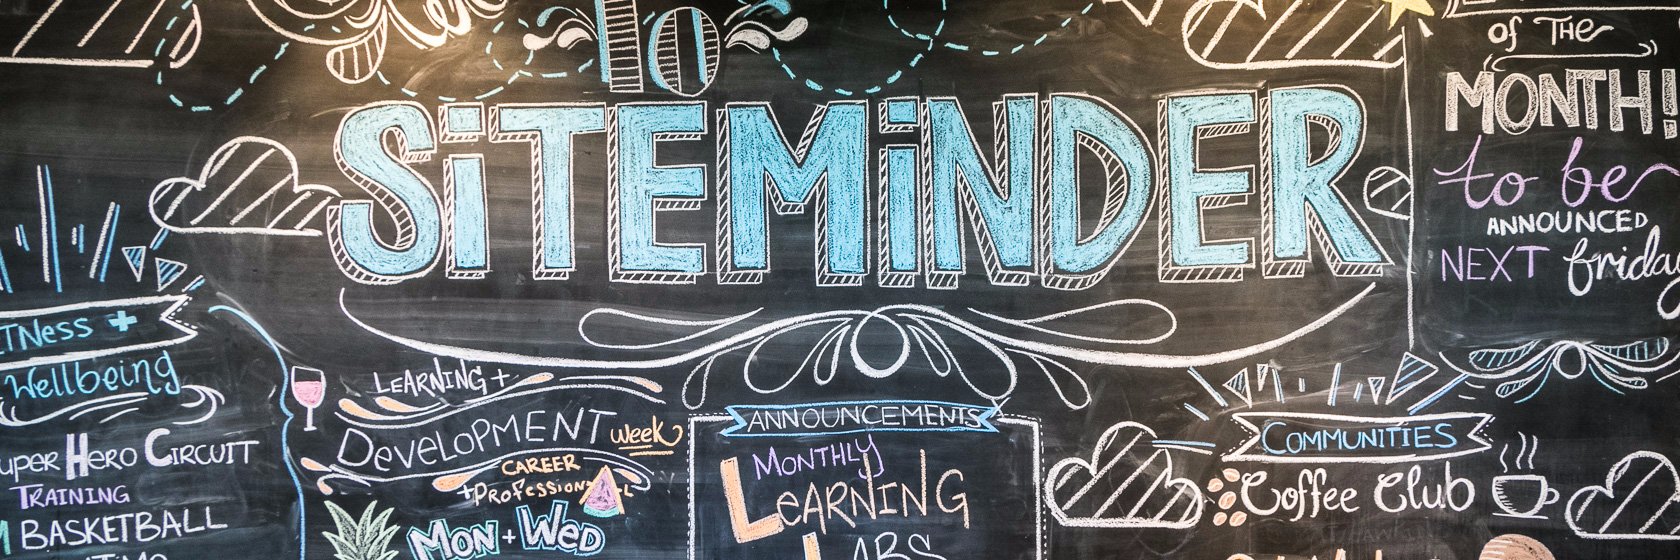 to
SiTEMiNDER
of THE
MONTH!
to be
ANNOUNCED
NEXT friday
Wellbeing
HERO CIRCUIT
TRAINING
BASKETBALL
LEARNING +
DEVELOPMENT week
CAREER
MON + WED
ANNOUNCEMENTS
MONTHLY
LEARNING
LABS
COMMUNITIES
Coffee Club